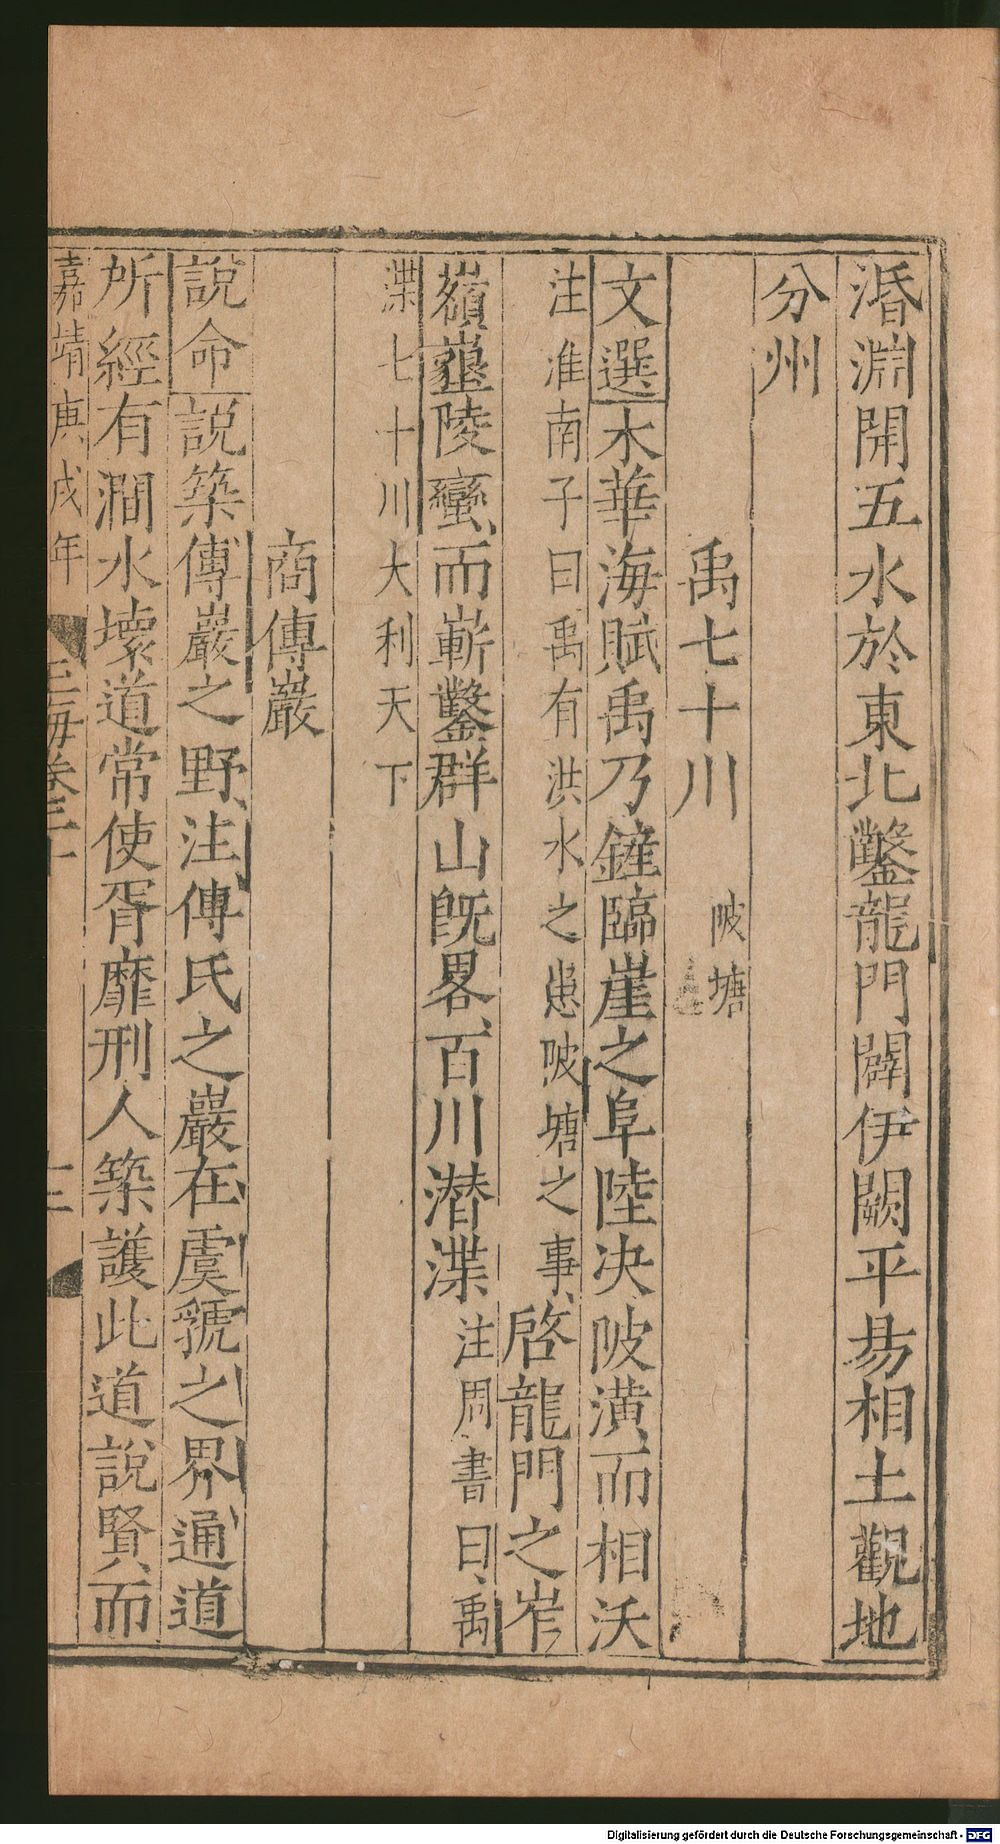 湣淵開五水於東北鑿龍門闢伊闕平昜相土觀地
分州
禹七十川 陂塘
文選木華海賦禹乃鏟臨崖之阜陸决陂潢而相沃
注淮南子曰禹有洪水之患陂塘之事啓龍門之岝
嶺墾陵巒而嶄鑿群山旣畧百川潛渫注周書曰禹
渫七十川大利天下
商傅巖
說命說築傅巖之野注傅氏之巖在虞虢之界通道
所經有澗水壞道常使胥靡刑人築護此道說賢而
嘉靖庚戌年 玉海卷二十
Digitalisierung gefördert durch die Deutsche Forschungsgemeinschaft - DFG